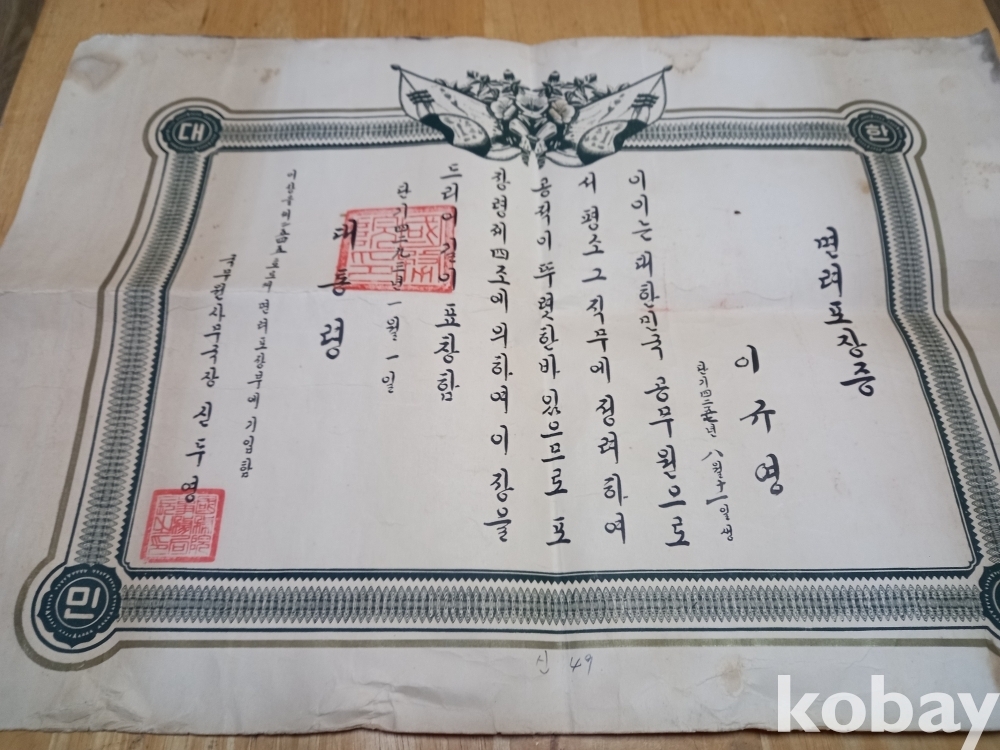 한
대
민
면려포장증
이규영
八월十一일생
이이는 대한민국 공무원으로
서 평소 그 직무에 정려하여
공적이 뚜렷한바 있으므로 포
장령제四조의 의하여 이 장을
드리어 길이 표창함
一월 一일
대통령
면려포장부에 기입함
국무원사무국장 신두영
신 49
kobay